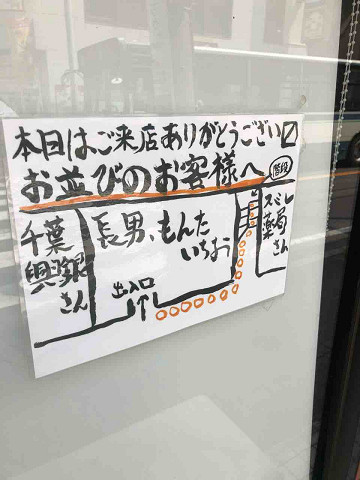 本日はご来店ありがとうござい〼
お並びのお客様へ
階段
千葉
興銀
さん
長男、もんた
いちお
出入口
スミレ
薬局
さん